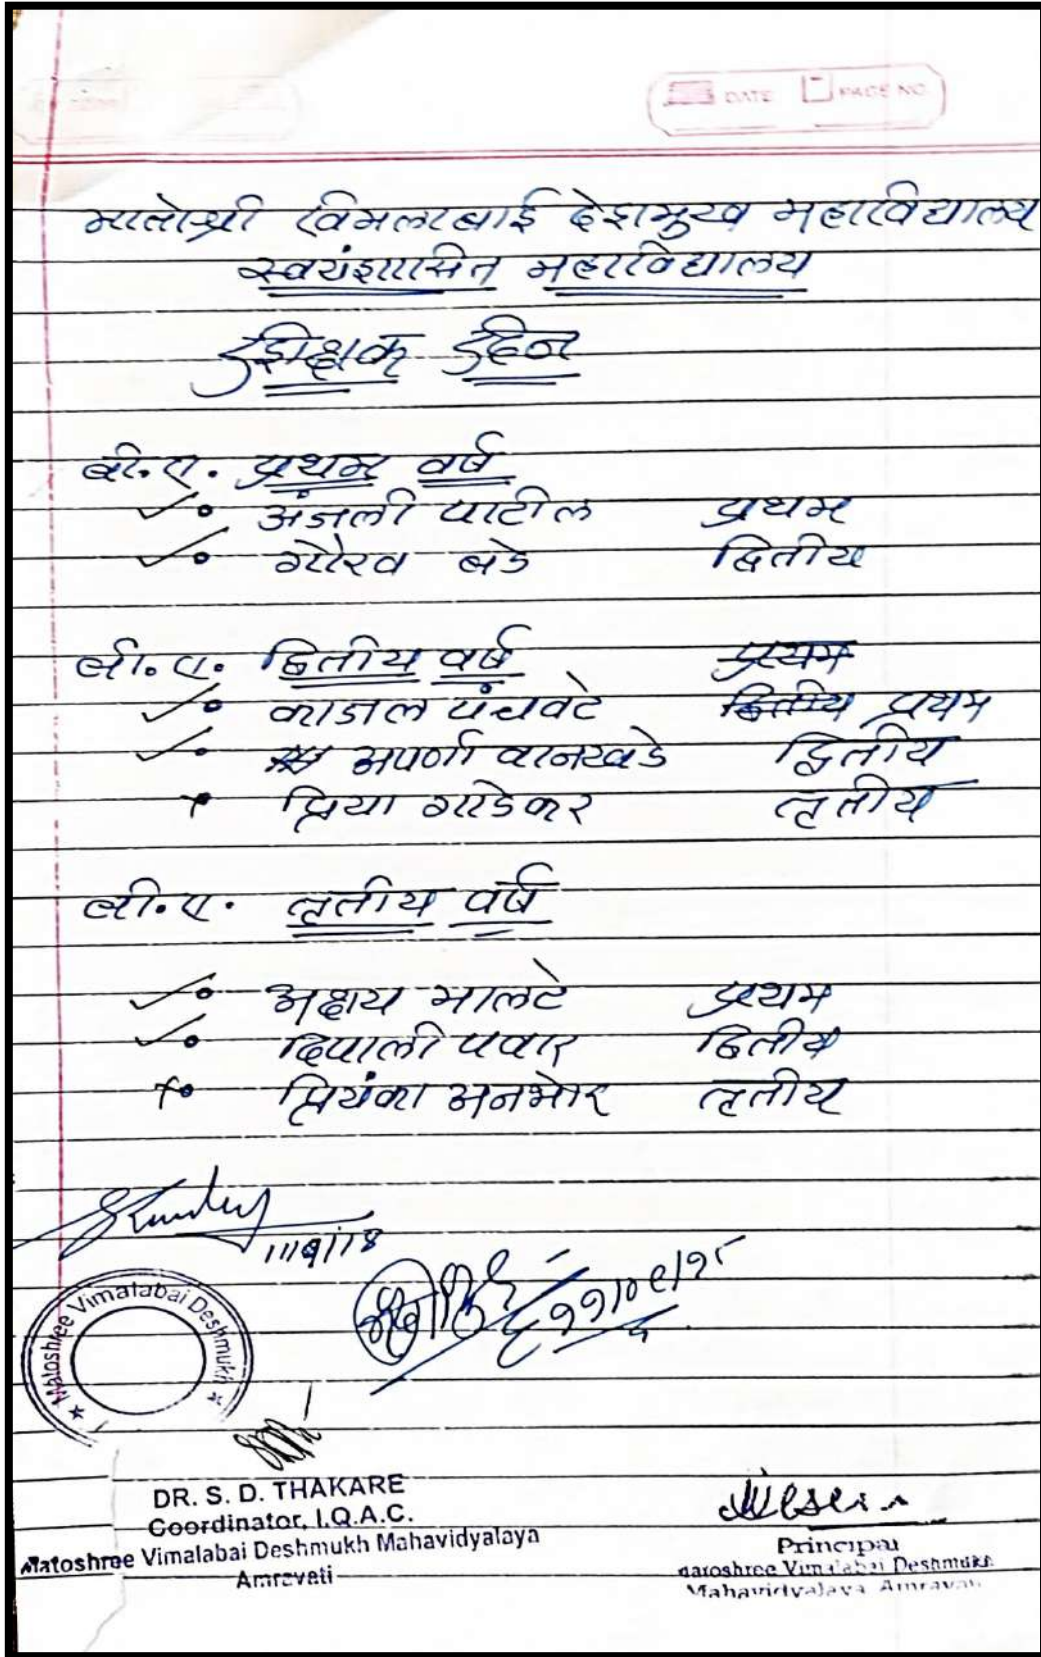 DATE PAGE NO.
मातोश्री विमलाबाई देशमुख महाविद्यालय
स्वयंशासित महाविद्यालय
शिक्षक दिन
बी.ए. प्रथम वर्ष
अंजली पाटील प्रथम
गौरव बंडे द्वितीय
बी.ए. द्वितीय वर्ष प्रथम
काजल पंचवटे द्वितीय प्रथम
अपर्णा वानखडे द्वितीय
प्रिया गाडेकर तृतीय
बी.ए. तृतीय वर्ष
अक्षय मालटे प्रथम
दिपाली पवार द्वितीय
प्रियंका अनभोर तृतीय
11/9/18
११/०९/१८
Matoshree Vimalabai Deshmukh
DR. S. D. THAKARE
Coordinator, I.Q.A.C.
Matoshree Vimalabai Deshmukh Mahavidyalaya
Amravati
Principal
Matoshree Vimalabai Deshmukh
Mahavidyalaya Amravati